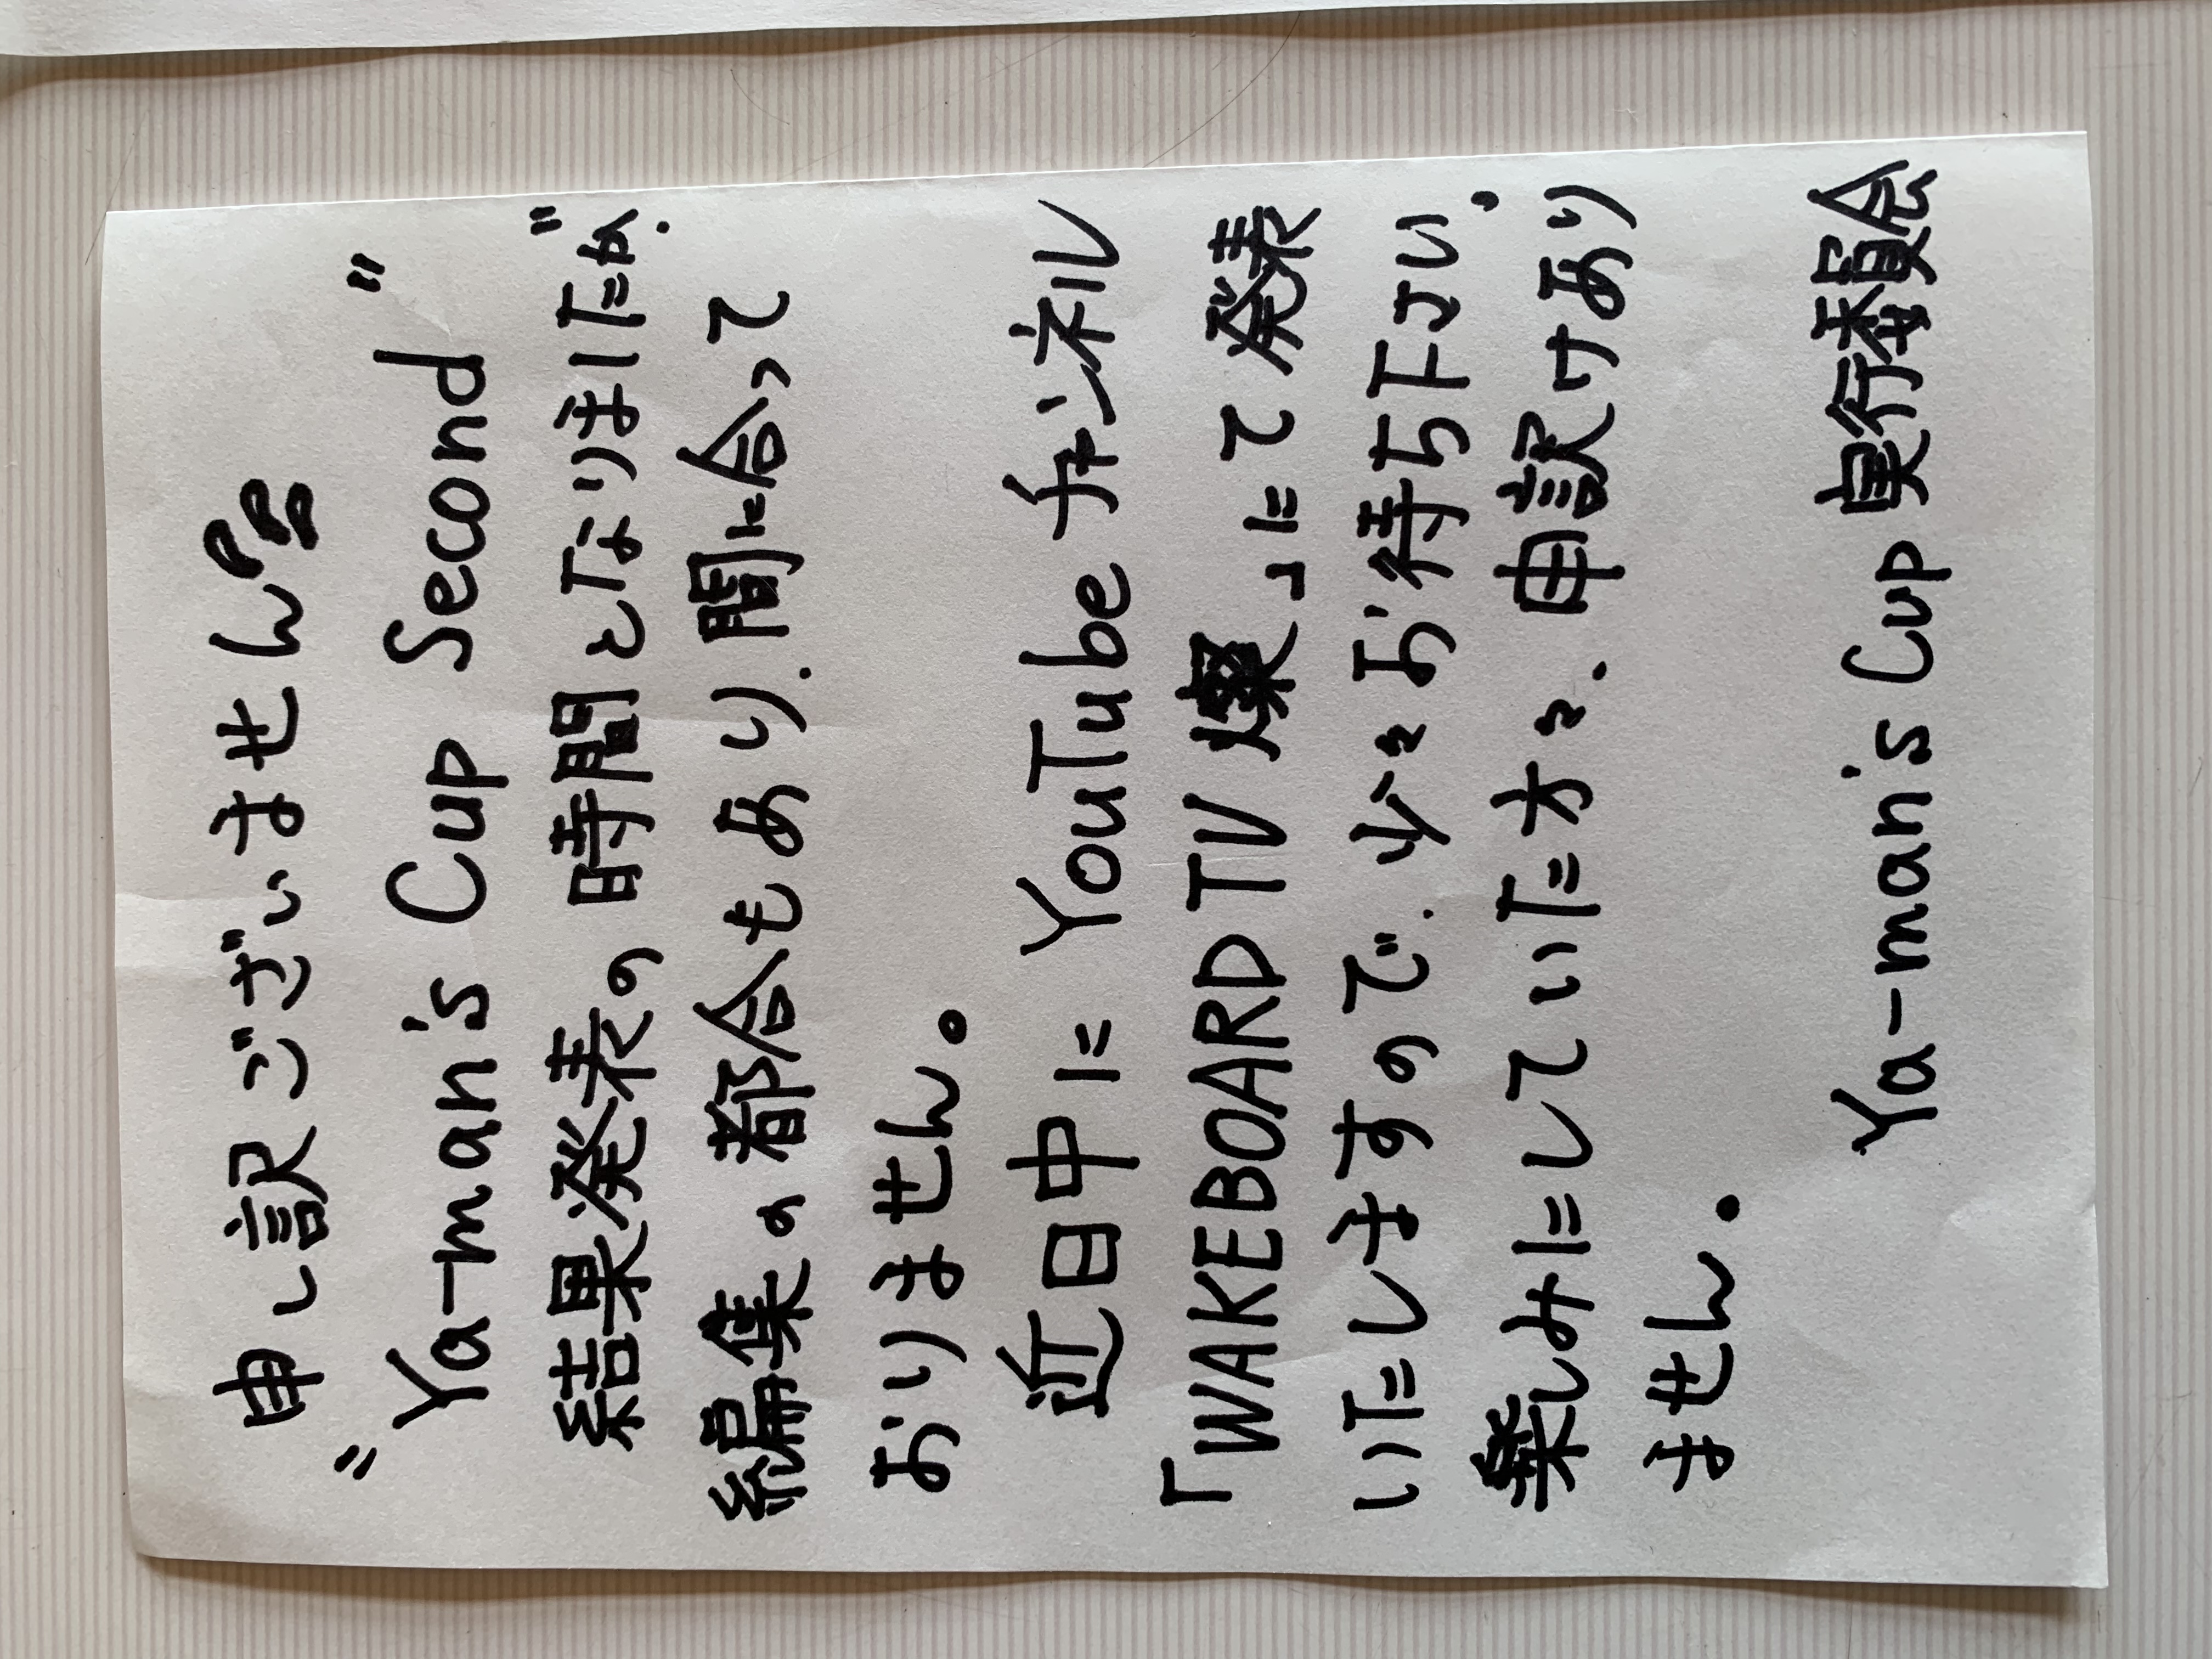 申し訳ございません!!
"Ya-man's Cup Second"
結果発表の時間となりましたが、
編集の都合もあり、間に合って
おりません。
近日中に YouTube チャンネル
「WAKEBOARD TV 燦」にて発表
いたしますので、少々お待ち下さい。
楽しみにしていた方々、申訳けあり
ません。
Ya-man's Cup 実行委員会